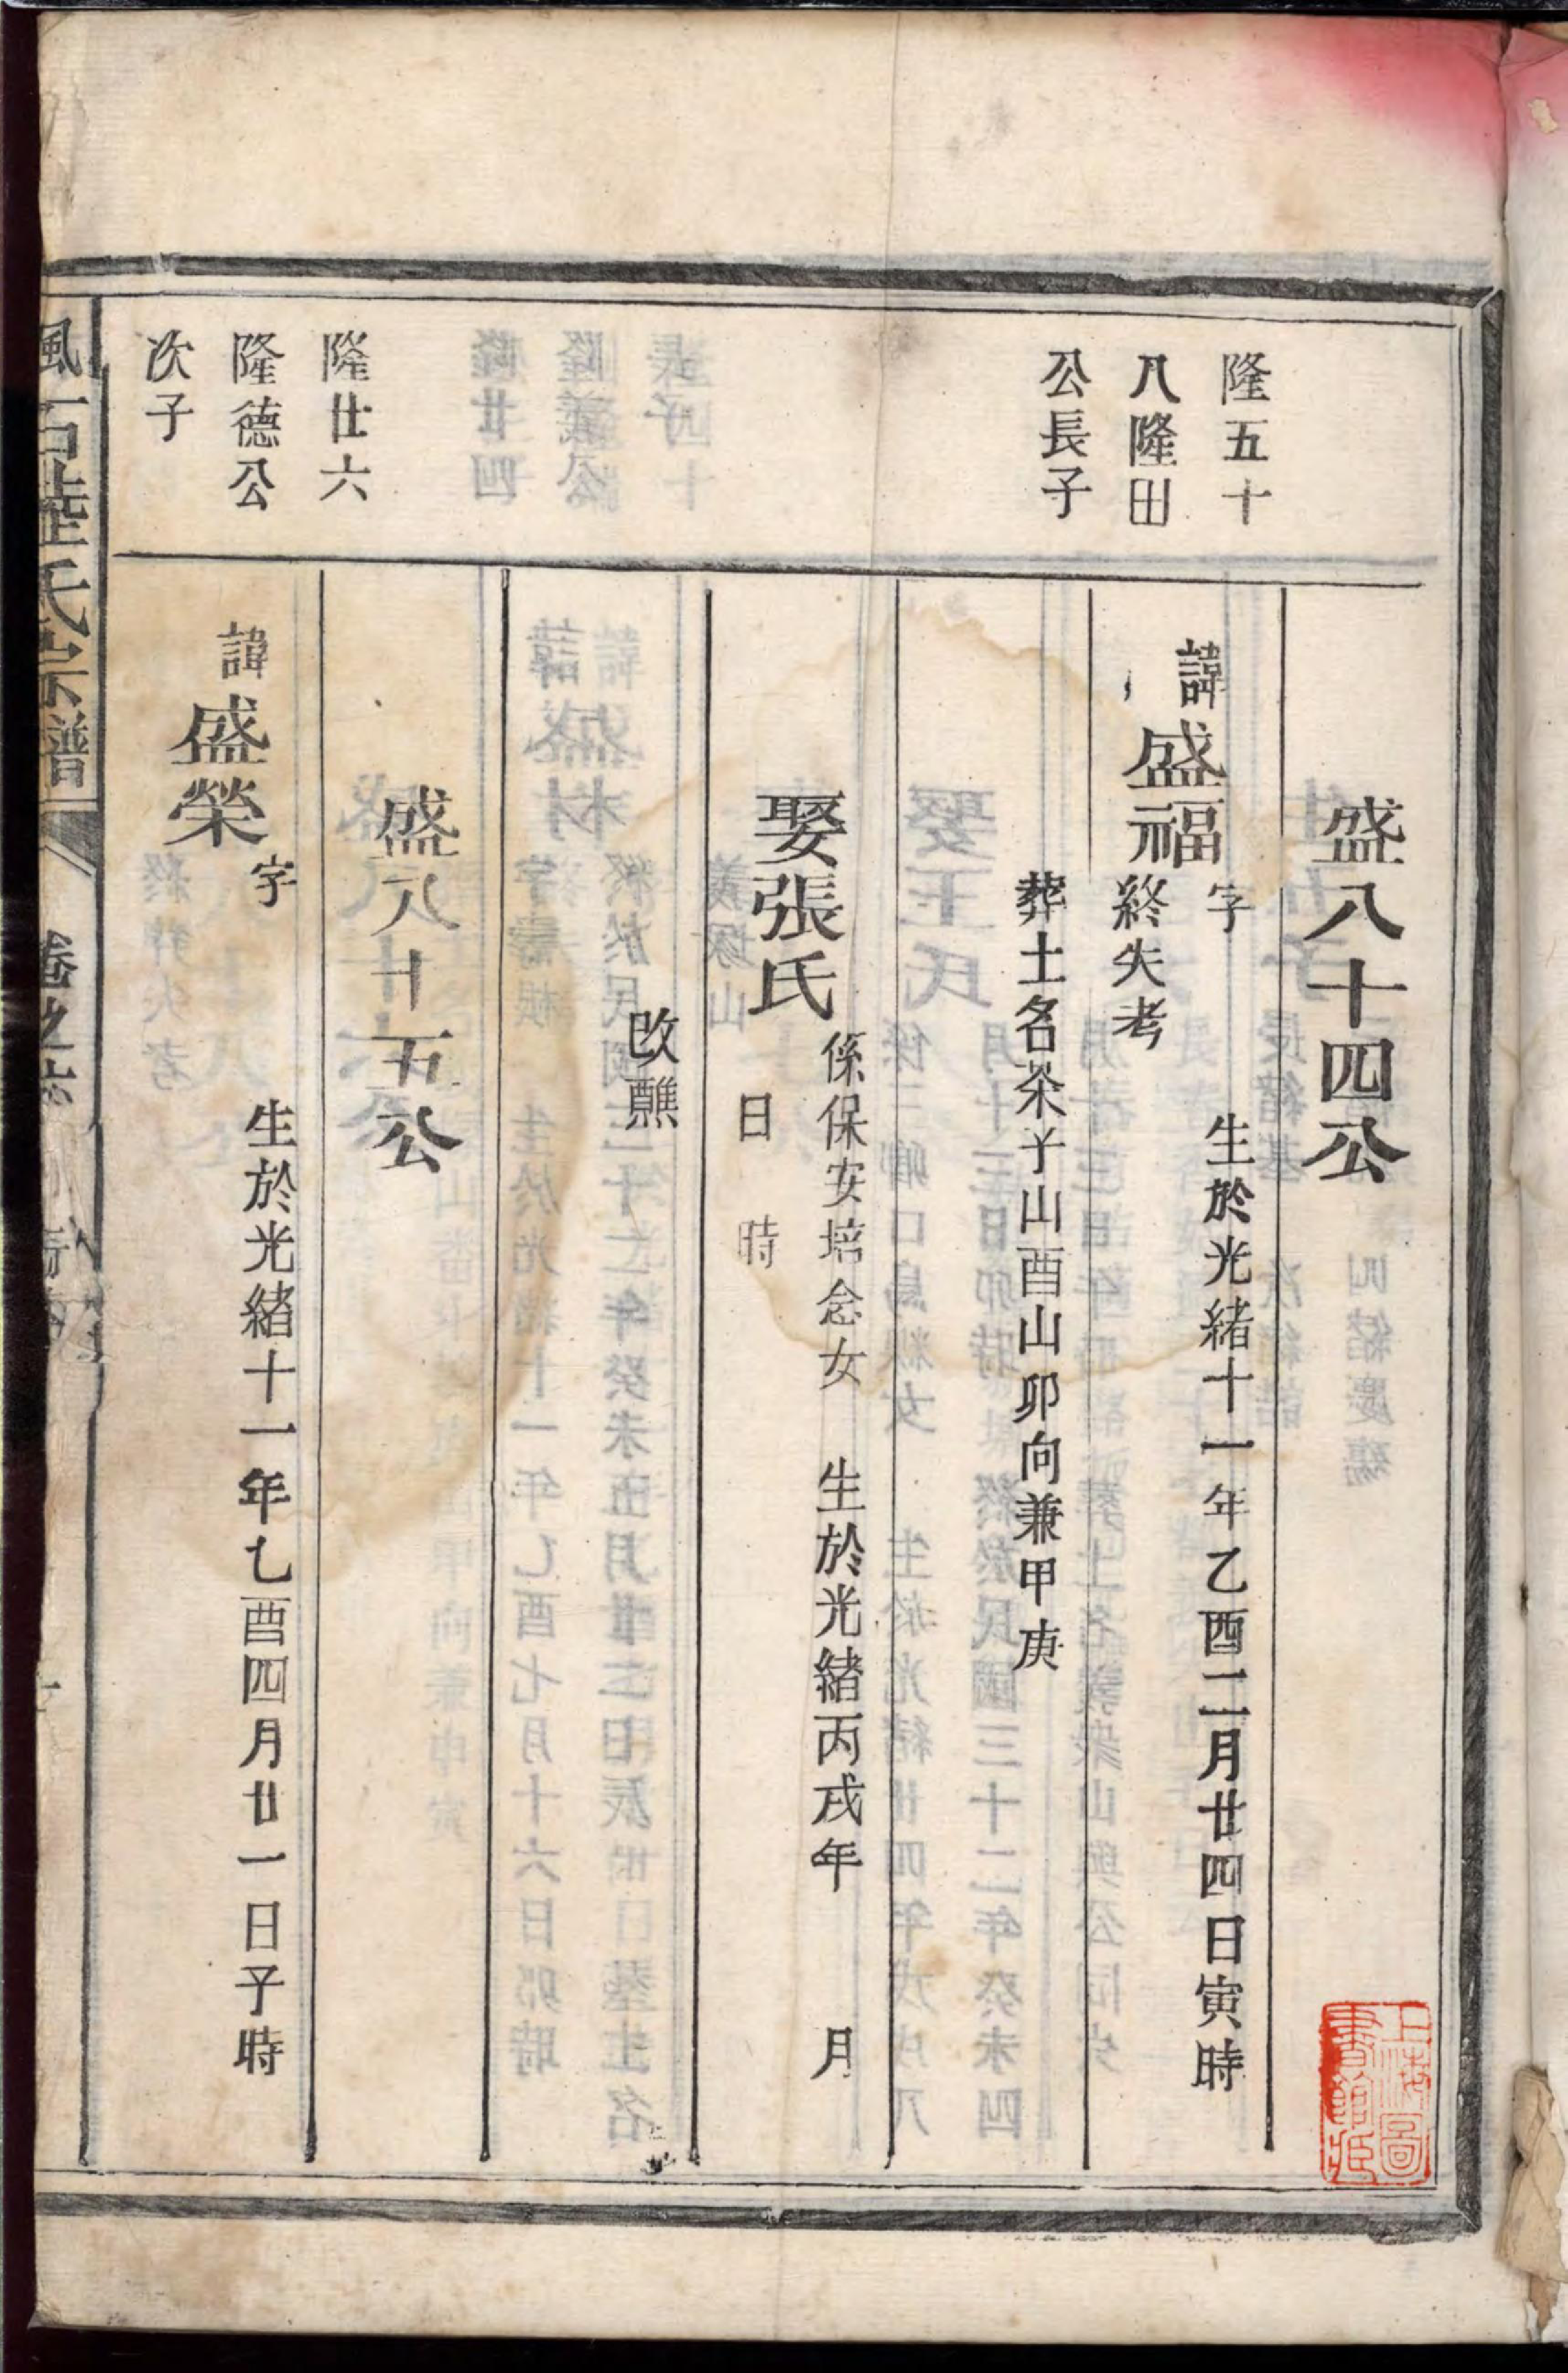 隆五十
八隆田
公長子
盛八十四公
諱盛福字 生於光緒十一年乙酉二月廿四日寅時
終失考
葬土名茶子山酉山卯向兼甲庚
娶張氏 係保安培念女 生於光緒丙戌年 月
日 時
改醮
隆廿六
隆德公
次子
盛八十五公
諱盛榮字 生於光緒十一年乙酉四月廿一日子時
氏宗譜
卷之
上海圖
書館藏